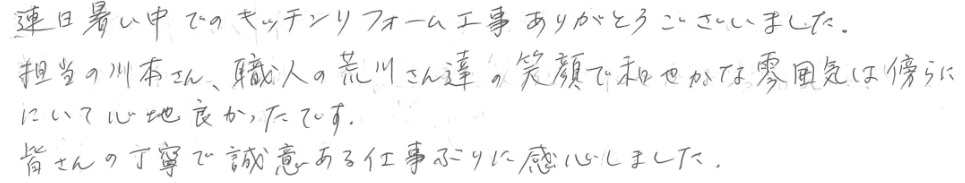 連日暑い中でのキッチンリフォーム工事ありがとうございました。
担当の川本さん、職人の荒川さん達の笑顔で和やかな雰囲気は傍らに
にいて心地良かったです。
皆さんの丁寧で誠意ある仕事ぶりに感心しました。